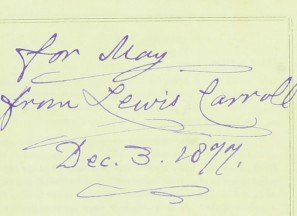 for May
from Lewis Carroll
Dec. 3. 1877.